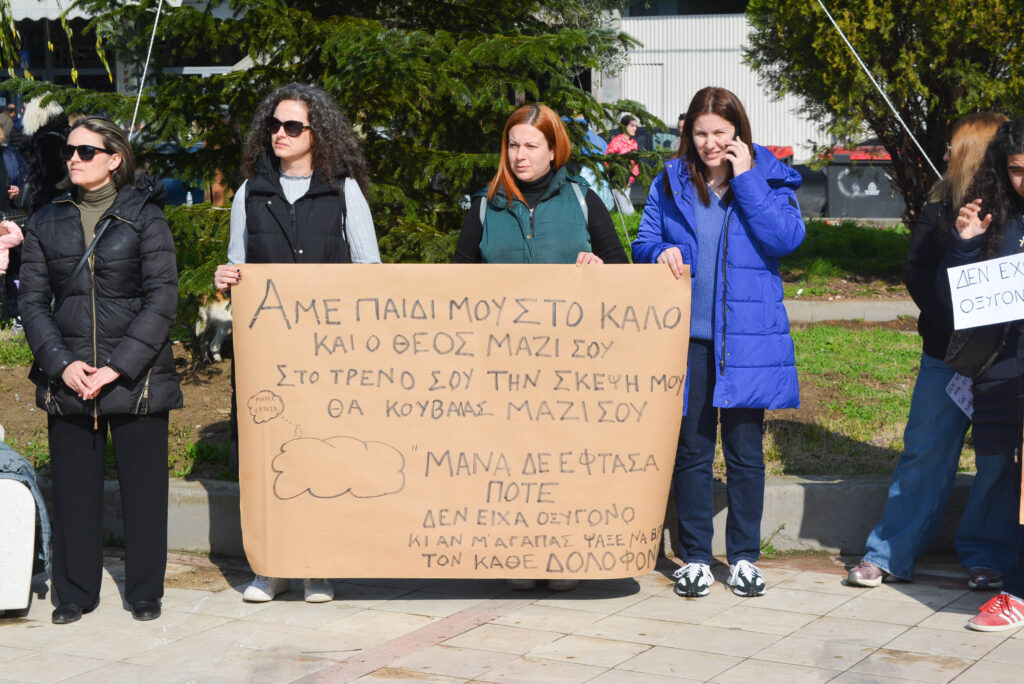 ΑΜΕ ΠΑΙΔΙ ΜΟΥ ΣΤΟ ΚΑΛΟ
ΚΑΙ Ο ΘΕΟΣ ΜΑΖΙ ΣΟΥ
ΣΤΟ ΤΡΕΝΟ ΣΟΥ ΤΗΝ ΣΚΕΨΗ ΜΟΥ
ΘΑ ΚΟΥΒΑΛΑΣ ΜΑΖΙ ΣΟΥ
ΜΑΜΑ
ΕΦΤΑΣΑ
"ΜΑΝΑ ΔΕ ΕΦΤΑΣΑ
ΠΟΤΕ
ΔΕΝ ΕΙΧΑ ΟΞΥΓΟΝΟ
ΚΙ ΑΝ Μ'ΑΓΑΠΑΣ ΨΑΞΕ ΝΑ
ΤΟΝ ΚΑΘΕ ΔΟΛΟΦΟΝ
ΔΕΝ ΕΧ
ΟΞΥΓΟΝ